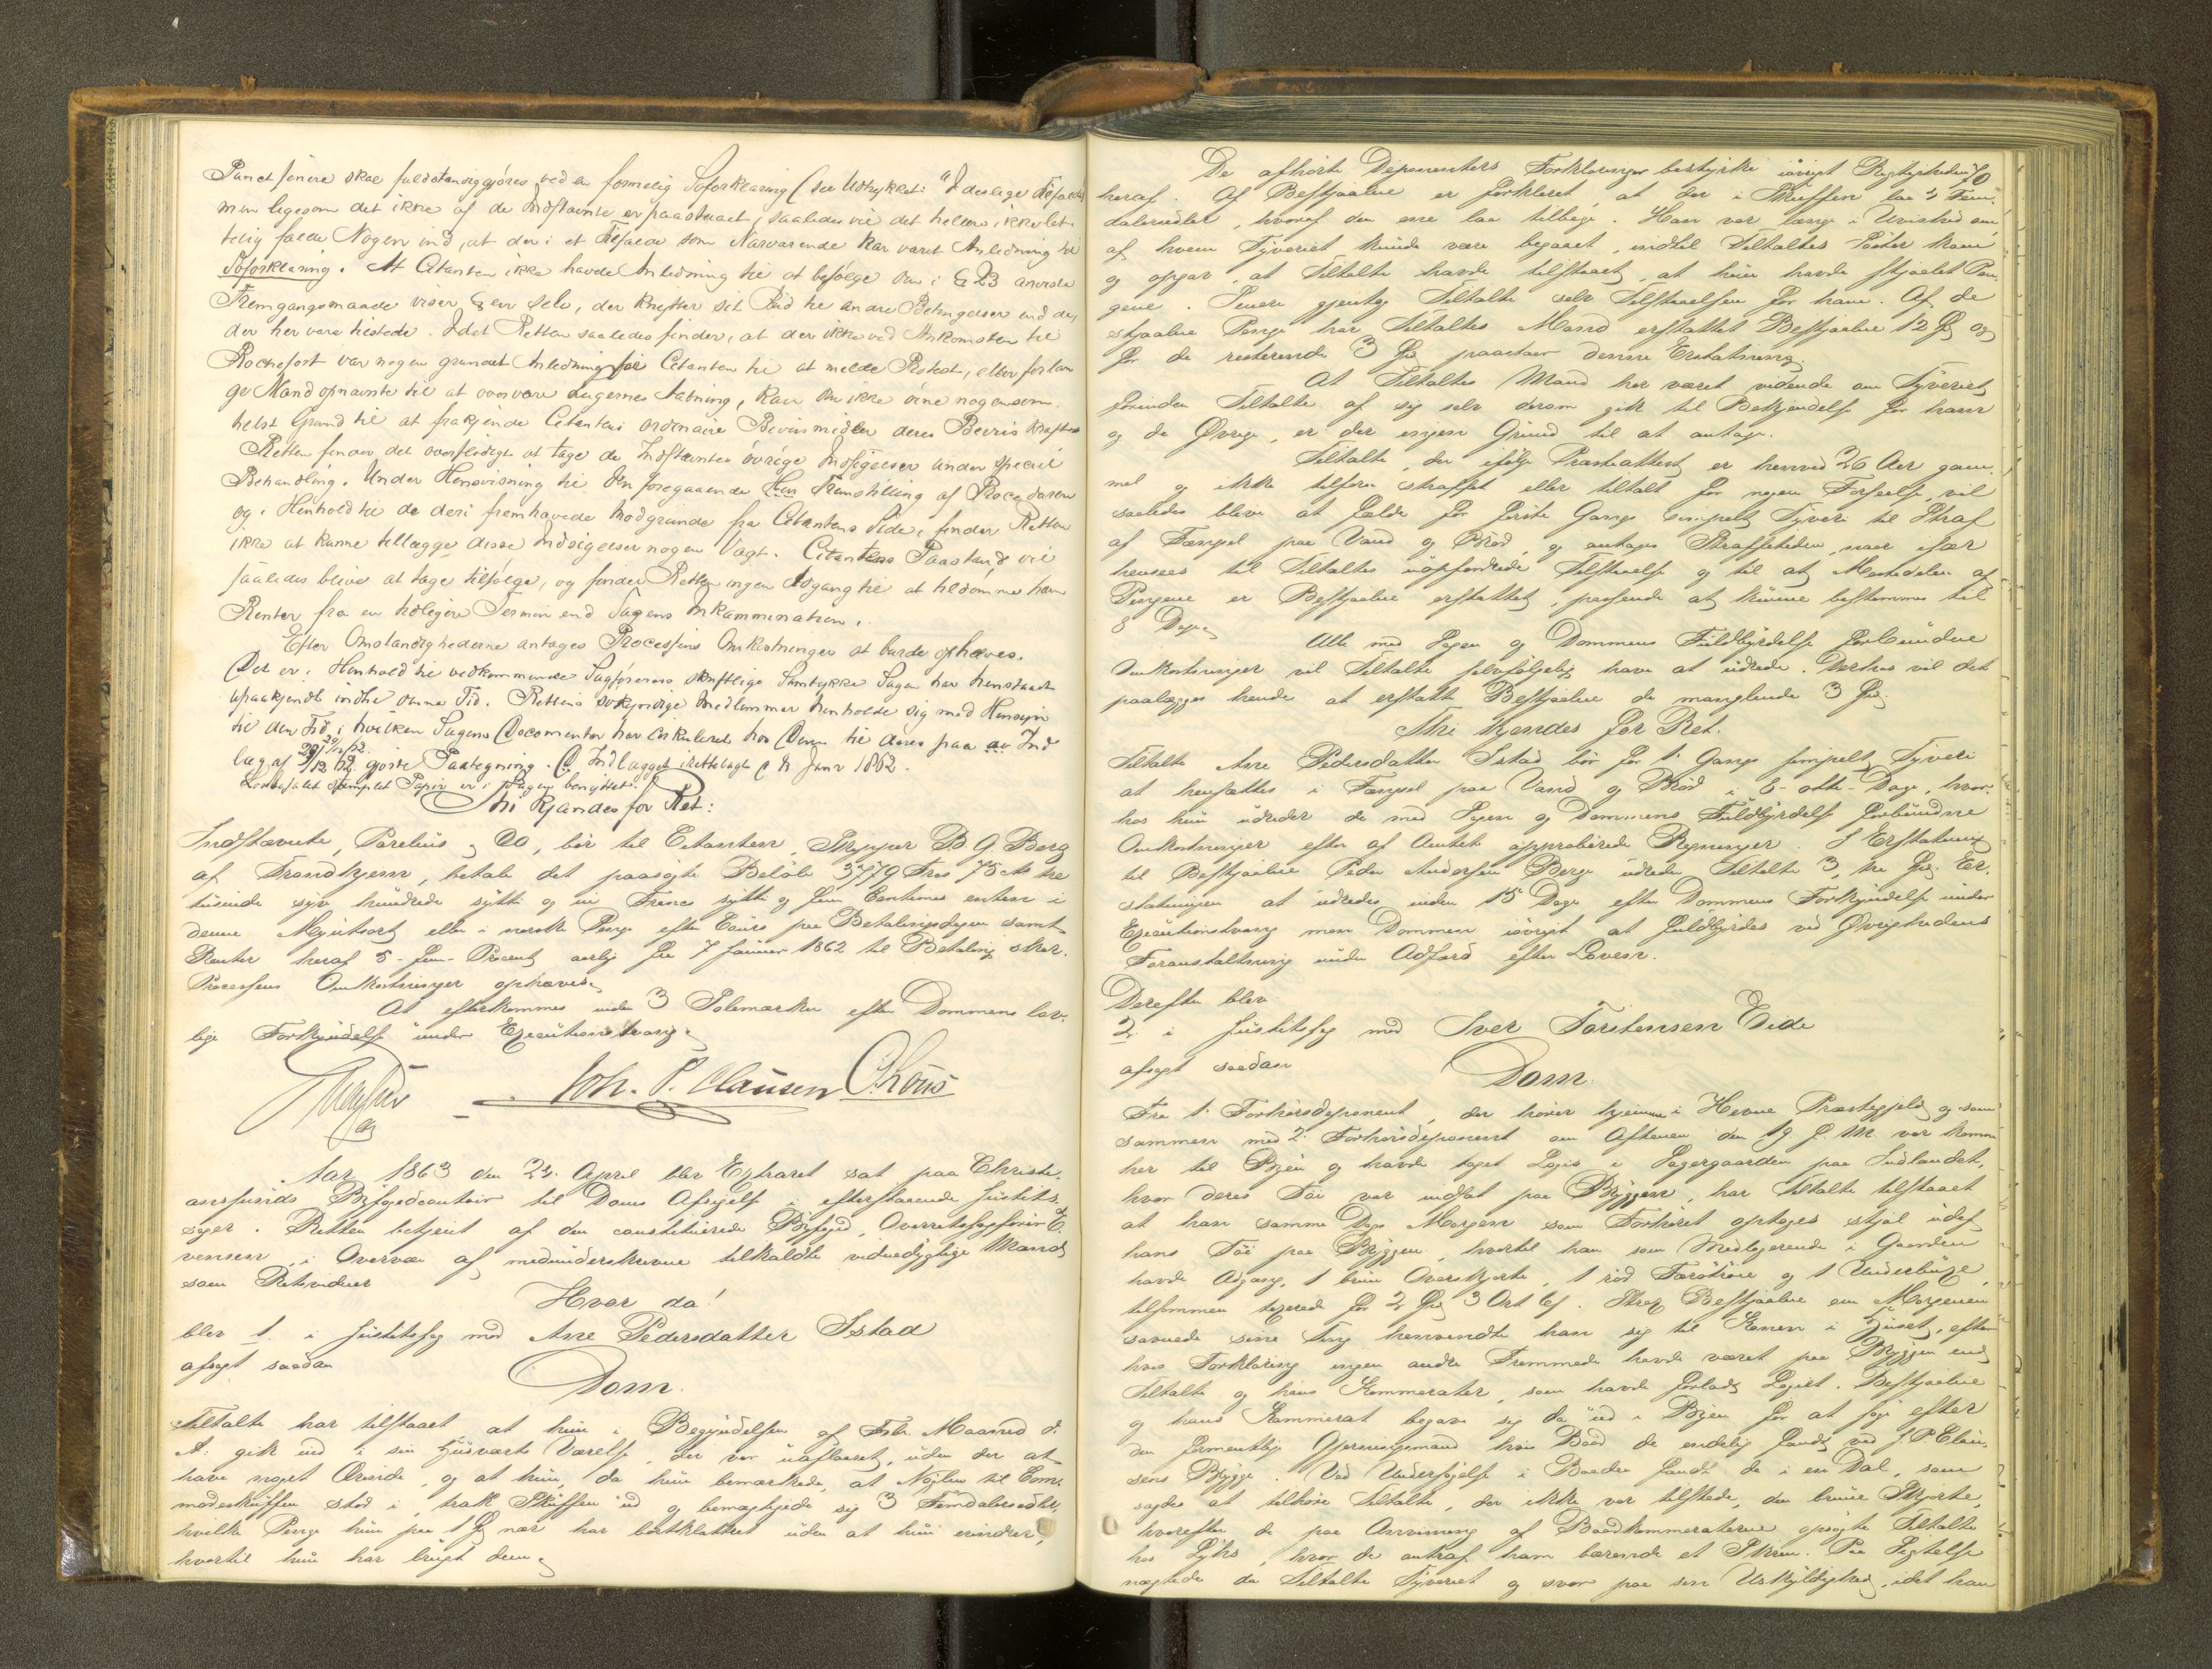 Punct senere skal fuldstændiggjøres ved en formelig Søforklaring (see Udtrykket: "I deslige Tilfælde)
men ligesom det ikke af de Indstævnte er paastaaet, saaledes vil det heller ikke let-
telig falde Nogen ind, at der i et Tilfælde som Nærværende har været Anledning til
Søforklaring. At Citanten ikke havde Anledning til at befølge den i § 23 anviste
Fremgangsmaade viser §en selv, der knytter sit Bud til andre Betingelser end de,
der her vare tilstede. Idet Retten saaledes finder, at der ikke ved Ankomsten til
Rochefort var nogen grundet Anledning for Citanten til at melde Protest, eller forlan
ge Mænd opnævnte til at overvære Lugernes Aabning, kan den ikke skjønne nogensom
helst Grund til at frakjende Citantens ordinaire Beviismidler deres Beviis kraft
Retten finder det overflødigt at tage de Indstævntes øvrige Indsigelser under speciel
Behandling. Under Henvisning til den foregaaende Fremstilling af Proceduren
og i Henhold til de deri fremhævede Modgrunde fra Citantens Side, finder Retten
ikke at kunne tillægge disse Indsigelser nogen Vægt. Citantens Paastand vil
saaledes blive at tage tilfølge, og finder Retten ingen Adgang til at tildømme ham
Renter fra en tidligere Termin end Sagens Inkammination.
Efter Omstændighederne antages Processens Omkostninger at burde ophæves.
Det er i Henhold til vedkommende Sagføreres skriftlige Samtykke Sagen har henstaaet
upaakjendt indtil denne Tid. Rettens søkyndige Medlemmer henholde sig med Hensyn
til den Tid, i hvilken Sagens Documenter har cirkuleret hos Dem til deres paa Ind
læg af 9/12 62 gjorte Paategning. Indlægget irettelagt d Janr 1862.
Lovbefalet stemplet Papir er i Sagen benyttet.
Thi kjendes for Ret:
Indstævnte, Parelius & Co, bør til Citanten, Skipper B G Berg
af Trondhjem, betale det paasøgte Beløb 3779 Frcs 75 cts tre
tusinde syv hundrede sytti og ni Francs sytti og fem Centimes enten i
denne Myntsort eller i norske Penge efter Cours paa Betalingsdagen samt
Renter heraf 5-fem-Procent aarlig fra 7 Januar 1862 til Betaling skeer.
Processens Omkostninger ophæves.
At efterkommes inden 3 Solemærker efter Dommens lov-
lige Forkyndelse under Executionstvang.
Joh. P. Clausen
Aar 1863 den 24 April blev Extraret sat paa Christi-
anssunds Byfogedcontoir til Doms Afsigelse i efterstaaende Justits-
sager. Retten betjent af den constituerede Byfoged, Overretssagfører E.
vensen, i Overvær af medunderskrevne tilkaldte vidnedygtige Mænd
som Retsvidner
Hvor da!
blev 1. i Justitssag mod Ane Pedersdatter Istad
afsagt saadan
Dom.
Tiltalte har tilstaaet at hun i Begyndelsen af Febr Maaned d.
A. gik ind i sin Husværts Værelse, der var uaflaaset, uden der at
have noget Ærinde, og at hun, da hun bemærkede, at Nøglen til Com-
modeskuffen stod i, trak Skuffen ud og bemægtigede sig 3 Femdalersedler,
hvilke Penge hun paa 1 Spd nær har bortklattet uden at hun erindrer,
hvortil hun har brugt dem.
De afhørte Deponenters Forklaringer bestyrke iøvrigt Rigtigheden
heraf. Af Bestjaalne er forklaret, at der i Skuffen laa 4 Fem-
dalersedler, hvoraf den ene laa tilbage. Han var længe i Uvished om
af hvem Tyveriet kunde være begaaet, indtil Tiltaltes Søster kom
og opgav, at Tiltalte havde tilstaaet, at hun havde stjaalet Pen-
gene. Senere gjentog Tiltalte selv Tilstaaelsen for ham. Af de
stjaalne Penge har Tiltaltes Mand erstattet Bestjaalne 12 Spd og
for de resterende 3 Spd paastaaer denne Erstatning.
At Tiltaltes Mand har været vidende om Tyveriet
forinden Tiltalte af sig selv derom gik til Bekjendelse for ham
og de Øvrige, er der ingen Grund til at antage.
Tiltalte, der ifølge Præsteattest er henved 26 Aar gam-
mel og ikke tilforn straffet eller tiltalt for nogen Forseelse, vil
saaledes blive at fælde for første Gangs simpelt Tyveri til Straf
af Fængsel paa Vand og Brød, og antages Straffetiden, naar især
hensees til Tiltaltes uopfordrede Tilstaaelse og til at Mestedelen af
Pengene er Bestjaalne erstattet, passende at kunne bestemmes til
8 Dage.
Alle med Sagen og Dommens Fuldbyrdelse forbundne
Omkostninger vil Tiltalte selvfølgelig have at udrede. Derhos vil det
paalægges hende at erstatte Bestjaalne de manglende 3 Spd.
Thi kjendes for Ret.
Tiltalte Ane Pedersdatter Istad bør for 1. Gangs simpelt Tyveri
at hensættes i Fængsel paa Vand og Brød i 8-otte-Dage, hvor-
hos hun udreder de med Sagen og Dommens Fuldbyrdelse forbundne
Omkostninger efter af Amtet approberede Regninger. I Erstatning
til Bestjaalne Peder Andersen Berge udreder Tiltalte 3, tre Spd. Er-
statningen at udredes inden 15 Dage efter Dommens Forkyndelse under
Executionstvang men Dommen iøvrigt at fuldbyrdes ved Øvrighedens
Foranstaltning under Adfærd efter Loven.
Derefter blev
2. i Justitssag mod Iver Torstensen Eide
afsagt saadan
Dom.
Fra 1. Forhørsdeponent, der hører hjemme i Hevne Præstegjeld og som
sammen med 2. Forhørsdeponent om Aftenen den 19 f. M. var kommen
her til Byen og havde taget Logis i Sagergaarden paa Indlandet,
hvor deres Tøi var indsat paa Bryggen, har Tiltalte tilstaaet
at han samme Dags Morgen som Forhøret optoges stjal ud af
hans Tøi paa Bryggen, hvortil han som Medlogerende i Gaarden
havde Adgang, 1 brun Overskjorte, 1 rød Færøtrøie og 1 Underbuxe,
tilsammen taxerede for 2 Spd 3 Ort 6 s. Strax Bestjaalne om Morgenen
savnede sine Ting henvendte han sig til Konen i Huset, efter
hvis Forklaring ingen andre Fremmede havde været paa Bryggen end
Tiltalte og hans Kammerater, som havde forladt Logiet. Bestjaalne
og hans Kammerat begave sig da ud i Byen for at søge efter
den formentlige Gjerningsmand hvis Baad de endelig fandt ved J. P. Clau-
sens Brygge. Ved Undersøgelse i Baaden fandt de i en Dal, som
sagdes at tilhøre Tiltalte, der ikke var tilstede, den brune Skjorte,
hvorefter de paa Anvisning af Baadkammeraterne opsøgte Tiltalte
hos Lyhs, hvor de antraf ham bærende et Skrin. Paa Sigtelse
nægtede da Tiltalte Tyveriet og svor paa sin Uskyldighed, idet han